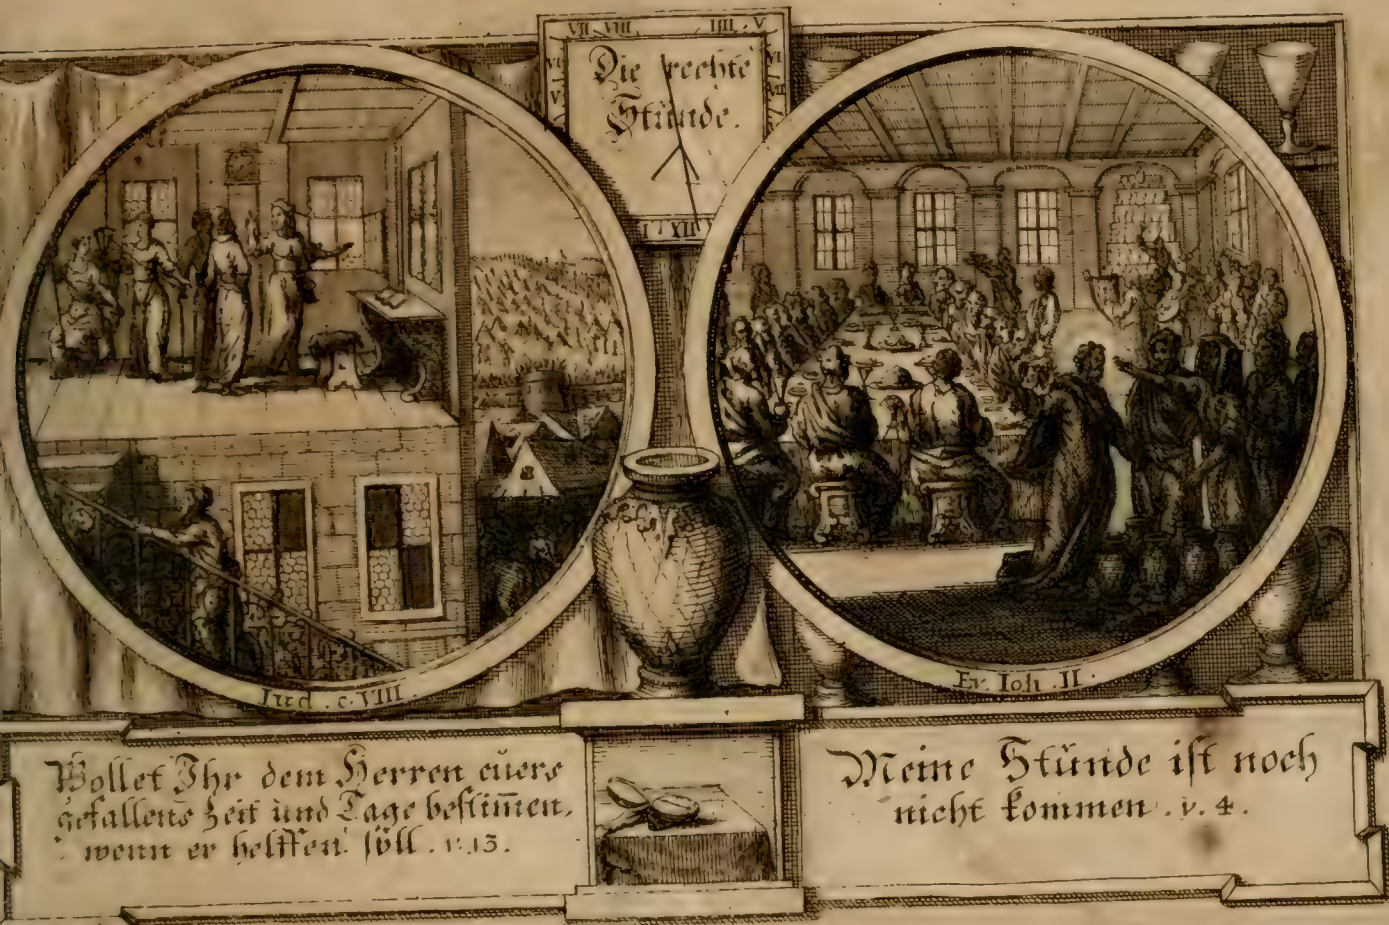 VII VIII IIII V
Die rechte
Stunde.
I XII
Jud. c. VIII.
Ev. Ioh. II.
Wollet Ihr dem Herren eüers
gefallens Zeit ünd Tage bestim̄en,
wenn er helffen soll. v. 13.
Meine Stünde ist noch
nicht kommen. v. 4.